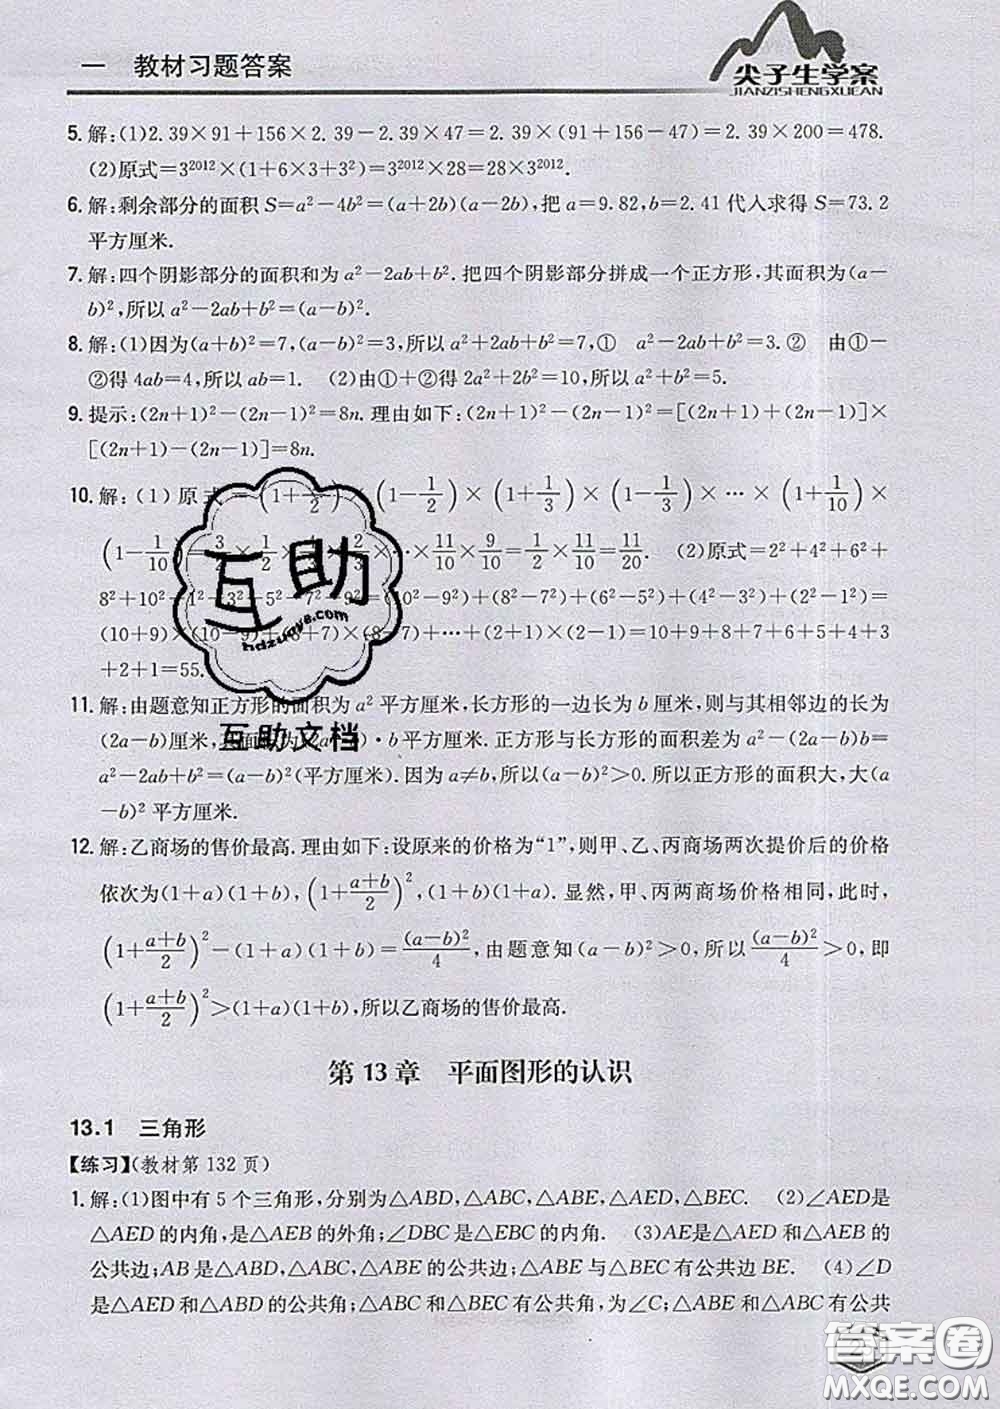 一 教材习题答案
尖子生学案
JIANZISHENGXUEAN
5.解:(1)2.39×91+156×2.39-2.39×47=2.39×(91+156-47)=2.39×200=478.
(2)原式=3²⁰¹²×(1+6×3+3²)=3²⁰¹²×28=28×3²⁰¹².
6.解:剩余部分的面积S=a²-4b²=(a+2b)(a-2b),把a=9.82,b=2.41代入求得S=73.2
平方厘米.
7.解:四个阴影部分的面积和为a²-2ab+b².把四个阴影部分拼成一个正方形,其面积为(a-
b)²,所以a²-2ab+b²=(a-b)².
8.解:(1)因为(a+b)²=7,(a-b)²=3,所以a²+2ab+b²=7,① a²-2ab+b²=3.② 由①-
②得4ab=4,所以ab=1. (2)由①+②得2a²+2b²=10,所以a²+b²=5.
9.提示:(2n+1)²-(2n-1)²=8n.理由如下:(2n+1)²-(2n-1)²=[(2n+1)+(2n-1)]×
[(2n+1)-(2n-1)]=8n.
10.解:(1)原式=(1+1/2)(1-1/2)×(1+1/3)×(1-1/3)×…×(1+1/10)×
(1-1/10)=3/2×1/2×4/3×2/3×…×11/10×9/10=1/2×11/10=11/20. (2)原式=2²+4²+6²+
8²+10²-1²-3²-5²-7²-9²=(10²-9²)+(8²-7²)+(6²-5²)+(4²-3²)+(2²-1²)=
(10+9)×(10-9)+(8+7)×(8-7)+…+(2+1)×(2-1)=10+9+8+7+6+5+4+3
+2+1=55.
11.解:由题意知正方形的面积为a²平方厘米,长方形的一边长为b厘米,则与其相邻边的长为
(2a-b)厘米,其面积为(2a-b)·b平方厘米.正方形与长方形的面积差为a²-(2a-b)b=
a²-2ab+b²=(a-b)²(平方厘米).因为a≠b,所以(a-b)²>0.所以正方形的面积大,大(a
-b)²平方厘米.
12.解:乙商场的售价最高.理由如下:设原来的价格为“1”,则甲、乙、丙商场两次提价后的价格
依次为(1+a)(1+b),(1+(a+b)/2)²,(1+b)(1+a).显然,甲、丙两商场价格相同,此时,
(1+(a+b)/2)²-(1+a)(1+b)=(a-b)²/4,由题意知(a-b)²>0,所以(a-b)²/4>0,即
(1+(a+b)/2)²>(1+a)(1+b),所以乙商场的售价最高.
第13章 平面图形的认识
13.1 三角形
【练习】(教材第132页)
1.解:(1)图中有5个三角形,分别为△ABD,△ABC,△ABE,△AED,△BEC. (2)∠AED是
△AED的内角,是△AEB的外角;∠DBC是△EBC的内角. (3)AE是△AED和△AEB的
公共边;AB是△ABD,△ABC,△ABE的公共边;△ABE与△EBC有公共边BE. (4)∠D
是△AED和△ABD的公共角;△ABC和△EBC有公共角,为∠C;△ABE和△ABC有公共
互助
hdzuoye.com
互助文档
答案圈
MXQE.COM